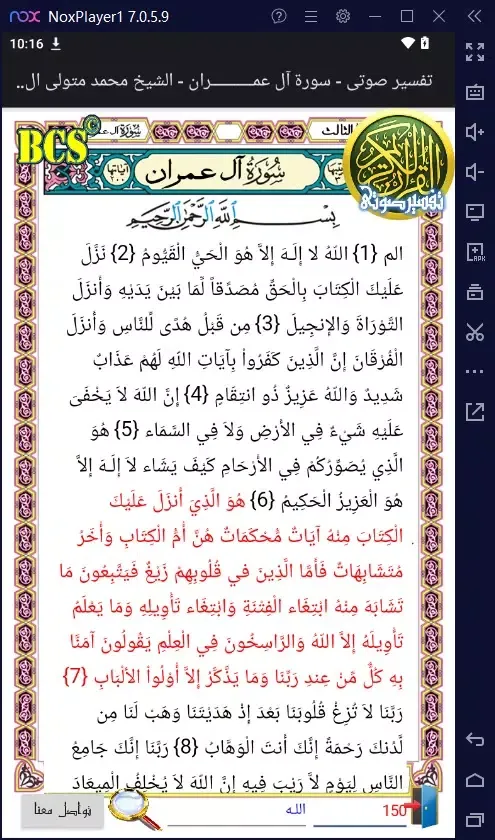 NoxPlayer1 7.0.5.9
10:16
تفسير صوتى - سورة آل عمـــــــــران - الشيخ محمد متولى ال..
BCS
سُورَةُ آل عمران
تفسير صوتى
بِسْمِ اللَّهِ الرَّحْمَنِ الرَّحِيمِ
الم {1} اللّهُ لا إِلَـهَ إِلاَّ هُوَ الْحَيُّ الْقَيُّومُ {2} نَزَّلَ
عَلَيْكَ الْكِتَابَ بِالْحَقِّ مُصَدِّقاً لِّمَا بَيْنَ يَدَيْهِ وَأَنزَلَ
التَّوْرَاةَ وَالإِنجِيلَ {3} مِن قَبْلُ هُدًى لِّلنَّاسِ وَأَنزَلَ
الْفُرْقَانَ إِنَّ الَّذِينَ كَفَرُواْ بِآيَاتِ اللّهِ لَهُمْ عَذَابٌ
شَدِيدٌ وَاللّهُ عَزِيزٌ ذُو انتِقَامٍ {4} إِنَّ اللّهَ لاَ يَخْفَىَ
عَلَيْهِ شَيْءٌ فِي الأَرْضِ وَلاَ فِي السَّمَاء {5} هُوَ
الَّذِي يُصَوِّرُكُمْ فِي الأَرْحَامِ كَيْفَ يَشَاء لاَ إِلَـهَ إِلاَّ
هُوَ الْعَزِيزُ الْحَكِيمُ {6} هُوَ الَّذِيَ أَنزَلَ عَلَيْكَ
الْكِتَابَ مِنْهُ آيَاتٌ مُّحْكَمَاتٌ هُنَّ أُمُّ الْكِتَابِ وَأُخَرُ
مُتَشَابِهَاتٌ فَأَمَّا الَّذِينَ في قُلُوبِهِمْ زَيْغٌ فَيَتَّبِعُونَ مَا
تَشَابَهَ مِنْهُ ابْتِغَاء الْفِتْنَةِ وَابْتِغَاء تَأْوِيلِهِ وَمَا يَعْلَمُ
تَأْوِيلَهُ إِلاَّ اللّهُ وَالرَّاسِخُونَ فِي الْعِلْمِ يَقُولُونَ آمَنَّا
بِهِ كُلٌّ مِّنْ عِندِ رَبِّنَا وَمَا يَذَّكَّرُ إِلاَّ أُوْلُواْ الألْبَابِ {7}
رَبَّنَا لاَ تُزِغْ قُلُوبَنَا بَعْدَ إِذْ هَدَيْتَنَا وَهَبْ لَنَا مِن
لَّدُنكَ رَحْمَةً إِنَّكَ أَنتَ الْوَهَّابُ {8} رَبَّنَا إِنَّكَ جَامِعُ
النَّاسِ لِيَوْمٍ لاَّ رَيْبَ فِيهِ إِنَّ اللّهَ لاَ يُخْلِفُ الْمِيعَادَ
تواصل معنا
الله
150